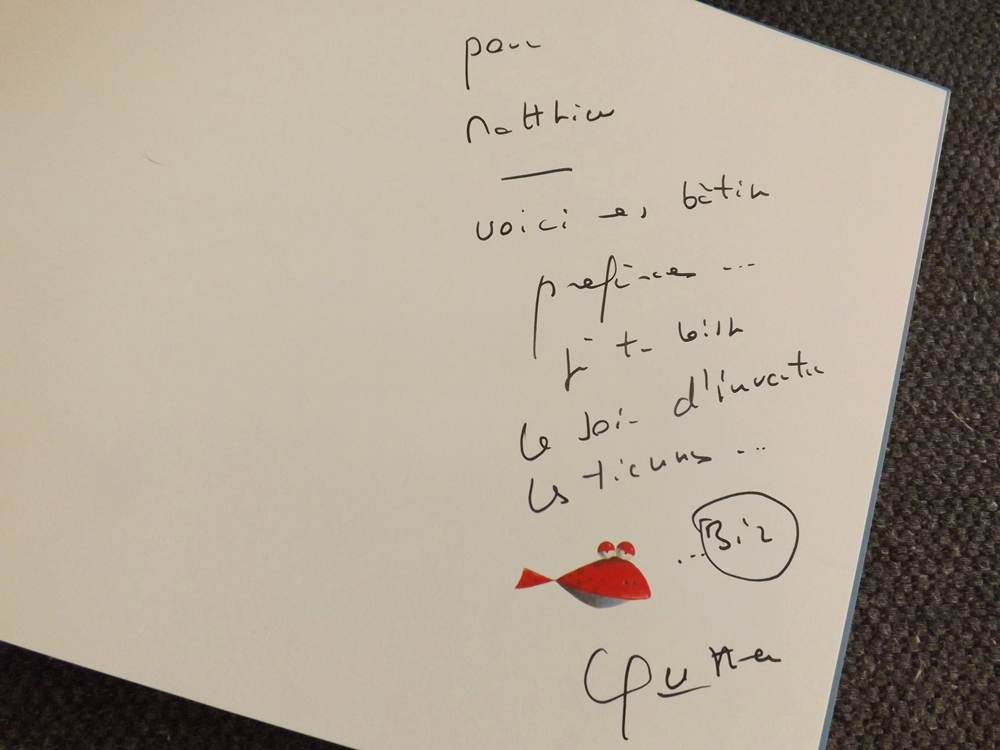 pour
Matthieu
voici mes bêtises
préférées ...
je te laisse
le soin d'inventer
les tiennes ...
... Biz